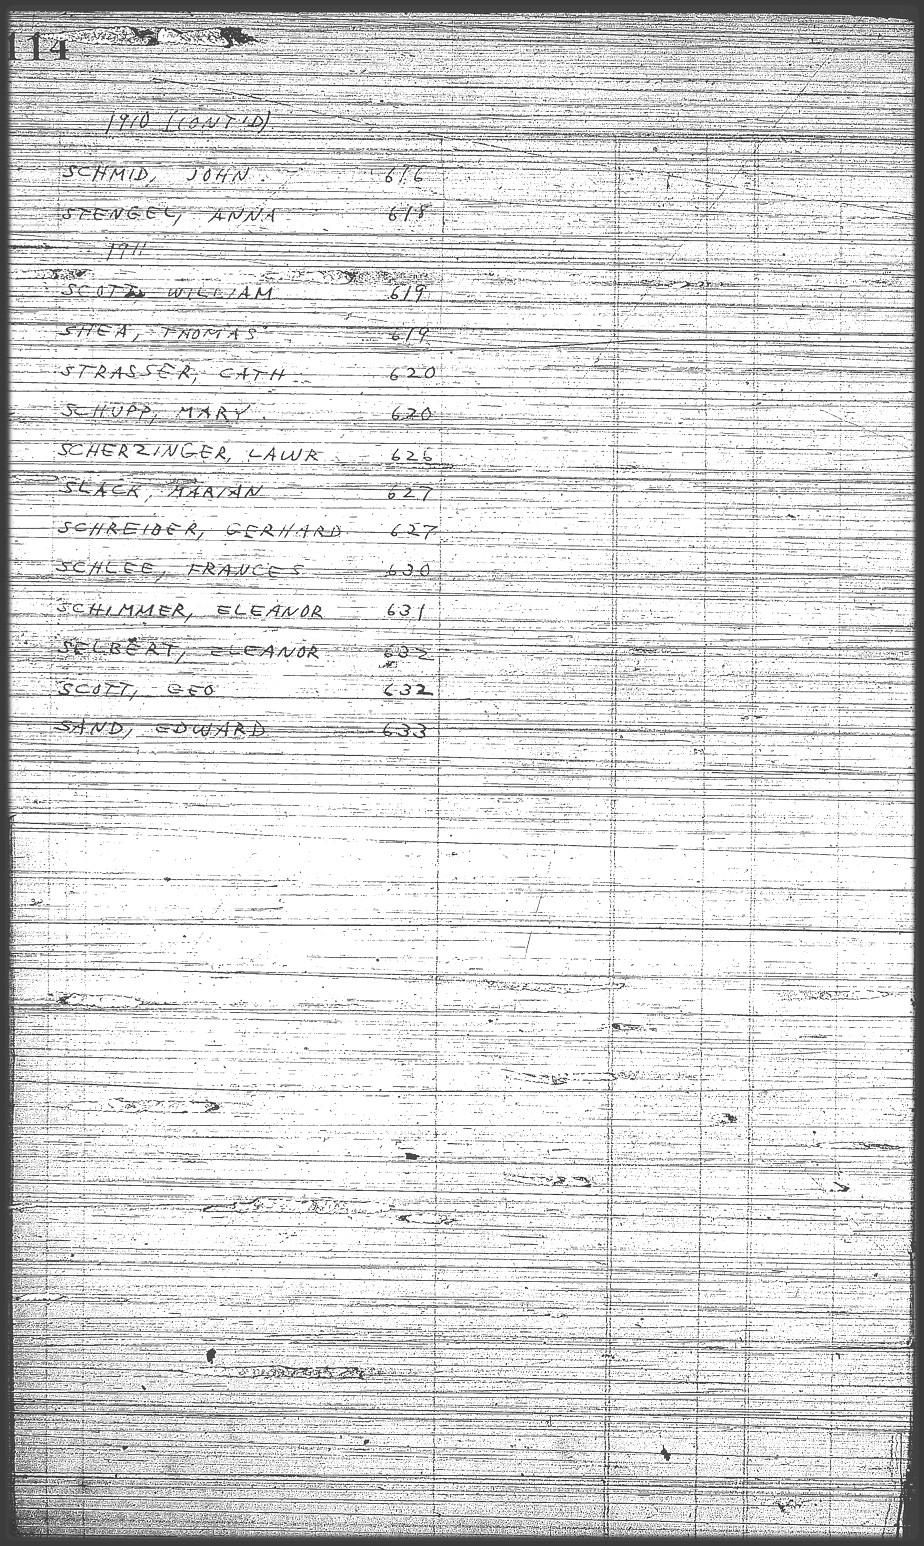 114
1910 (CONT'D)
SCHMID, JOHN 616
STENGEL, ANNA 618
1911
SCOTT WILLIAM 619
SHEA, THOMAS 619
STRASSER, CATH 620
SCHUPP, MARY 620
SCHERZINGER, LAWR 626
SLACK, MARIAN 627
SCHREIBER, GERHARD 627
SCHLEE, FRANCES 630
SCHIMMER, ELEANOR 631
SELBERT, ELEANOR 632
SCOTT, GEO 632
SAND, EDWARD 633